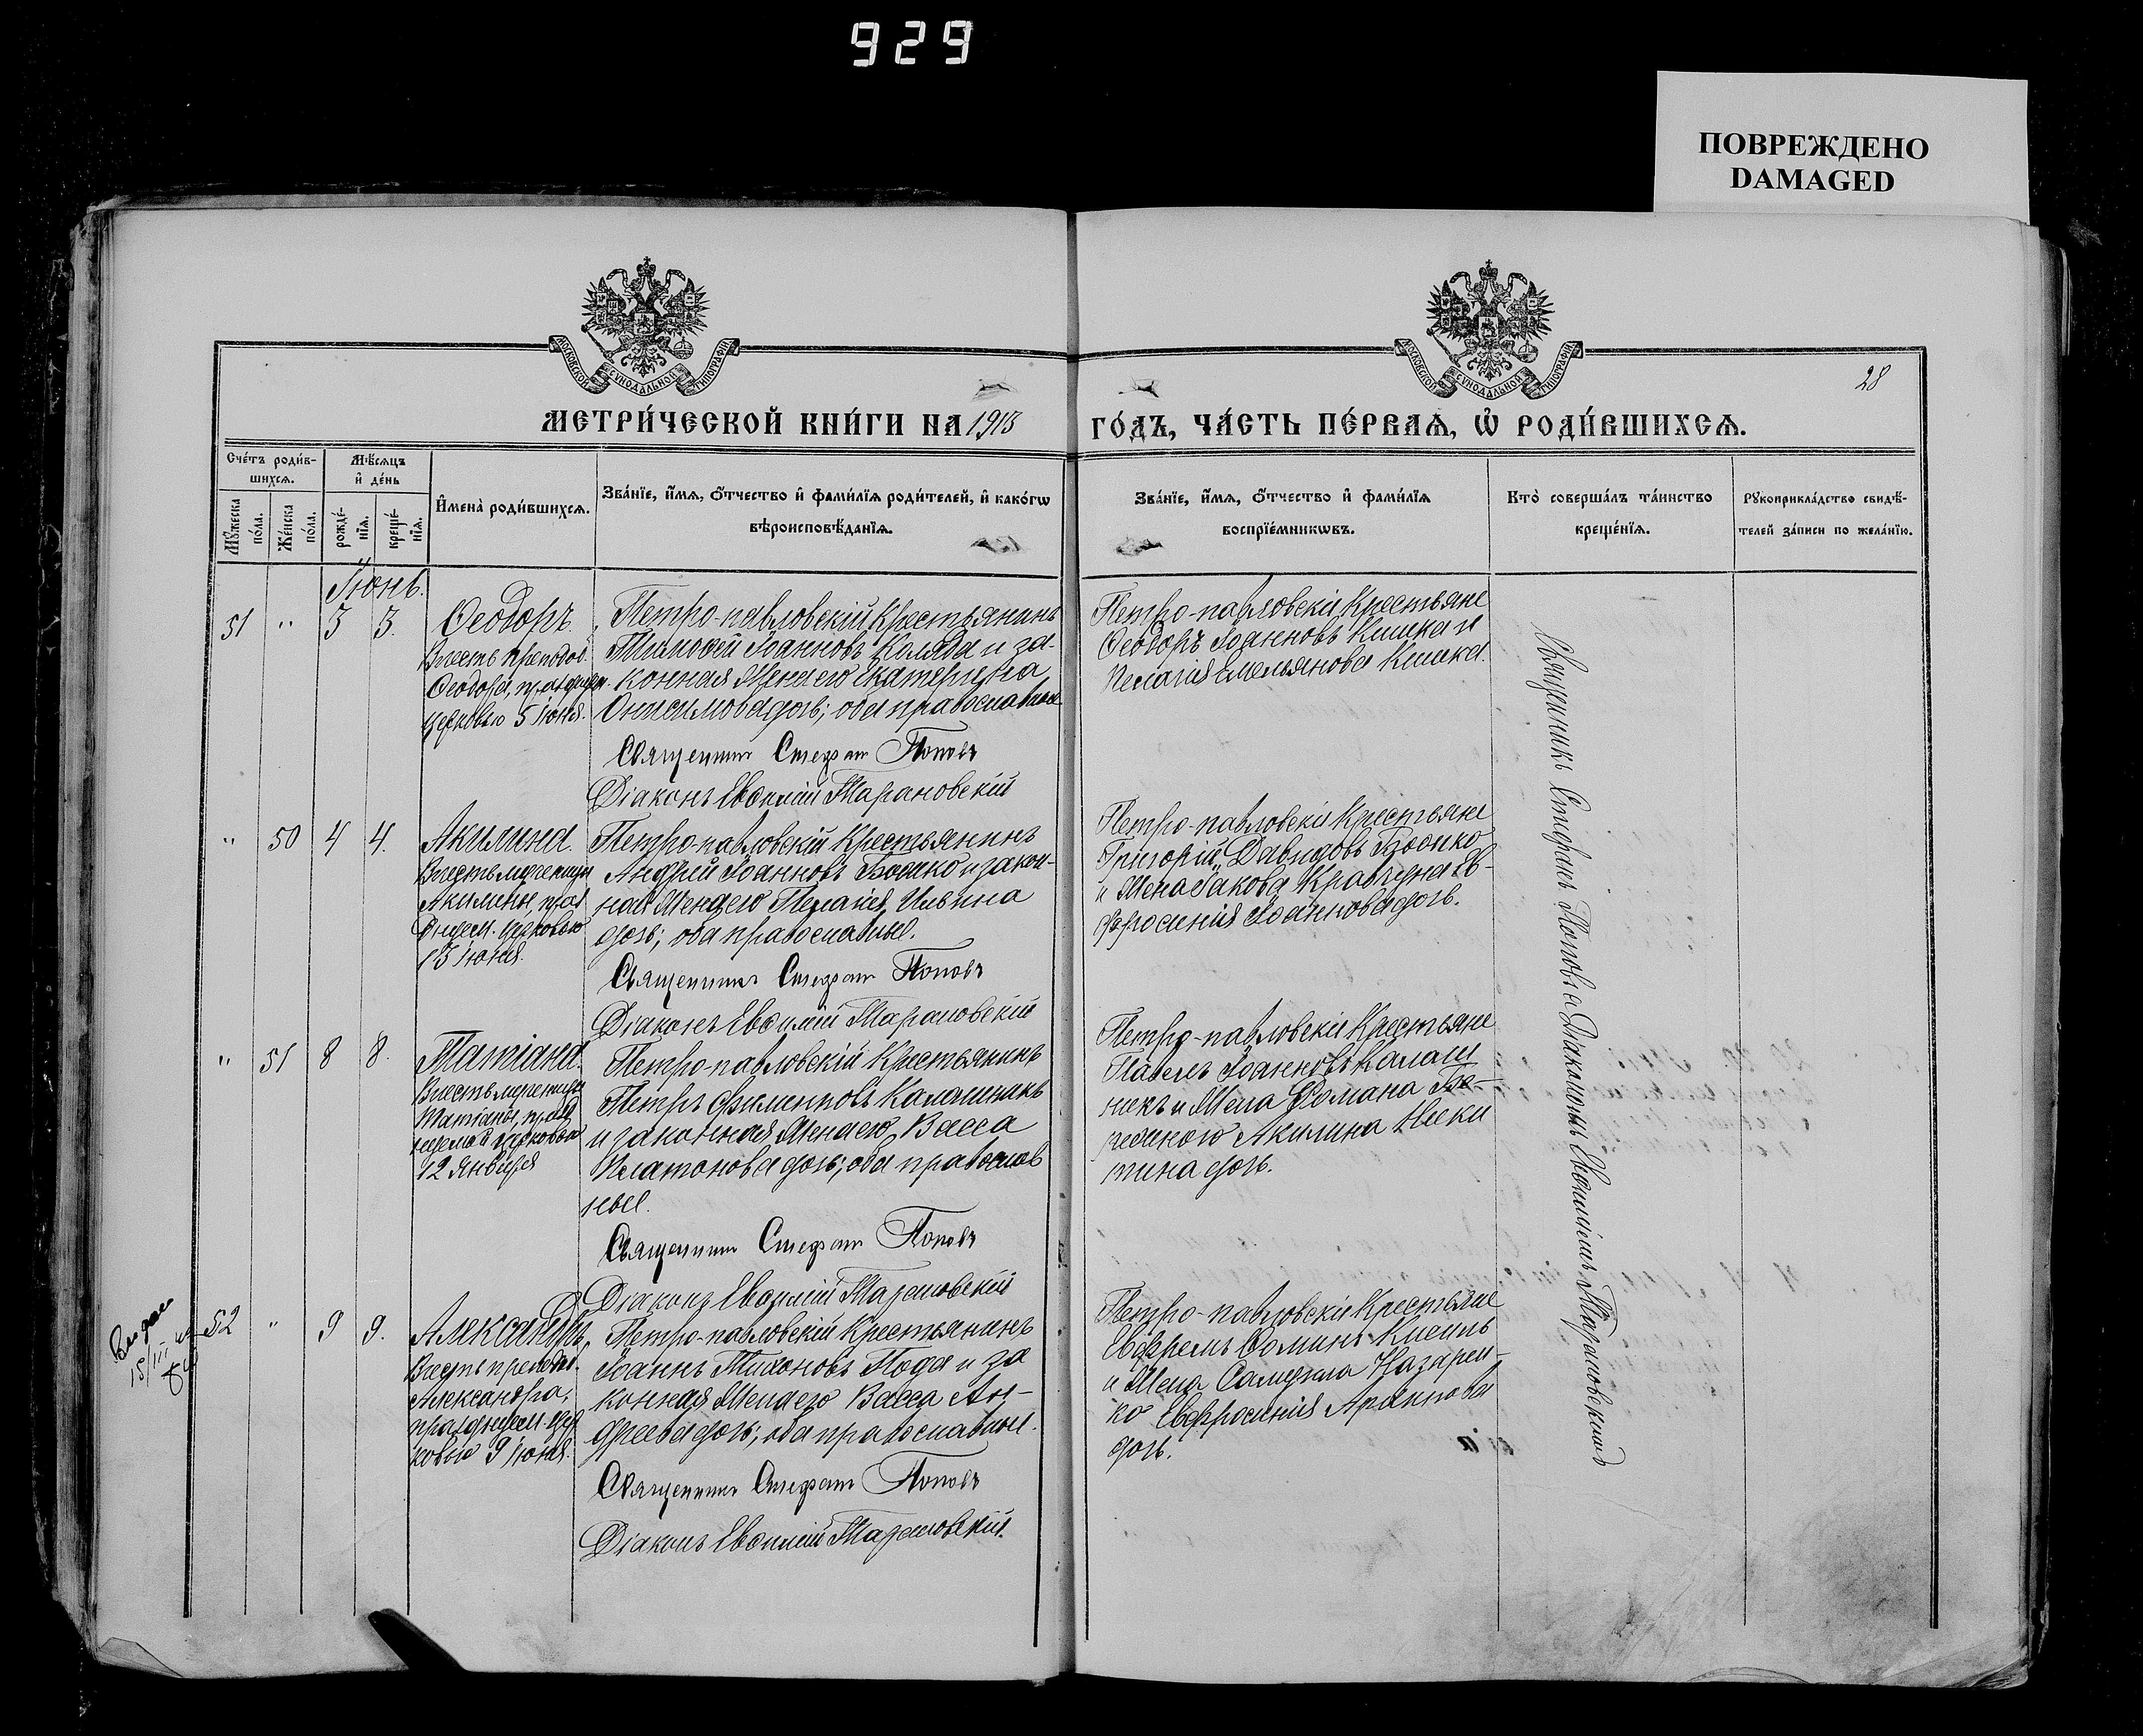 929
ПОВРЕЖДЕНО
DAMAGED
МОСКОВСКОЙ СѴНОДАЛЬНОЙ ТИПОГРАФІИ
МОСКОВСКОЙ СѴНОДАЛЬНОЙ ТИПОГРАФІИ
28
МЕТРИ́ЧЕСКОЙ КНИ́ГИ НА 1913 ГО́ДЪ, ЧА́СТЬ ПЕ́РВАѦ, Ѡ҆ РОДИ́ВШИХСѦ.
Сче́тъ роди́в-
шихсѧ.
Мꙋ́жеска по́ла.
Же́нска по́ла.
Мѣ́сѧцъ
и҆ де́нь
рожде́-
нїѧ.
креще́-
нїѧ.
И҆мена̀ роди́вшихсѧ.
Зва́нїе, и҆́мѧ, ѻ҆́тчество и҆ фами́лїѧ роди́телей, и҆ како́гѡ
вѣроисповѣ́данїѧ.
Зва́нїе, и҆́мѧ, ѻ҆́тчество и҆ фами́лїѧ
воспрїе́мникѡвъ.
Кто̀ соверша́лъ та́инство
креще́нїѧ.
Рꙋкоприкла́дство свидѣ́-
телей за́писи по жела́нїю.
Іюнь.
51 " 3 3. Ѳеодоръ.
Вчесть преподоб.
Ѳеодора, празднуем.
церковью 5 іюня.
Петро-павловскій крестьянинъ
Тимоѳей Іоанновъ Коляда и за-
конная жена его Екатерина
Онисимова дочь; оба православные
Священникъ Стефанъ Поповъ
Діаконъ Евѳимій Тарановскій
Петро-павловскіе крестьяне
Ѳеодоръ Іоанновъ Кишка и
Пелагія Емельянова Кишка.
" 50 4 4. Акилина.
Вчесть мученицы
Акилины, праз
днуем. церковью
13 іюня.
Петро-павловскій крестьянинъ
Андрей Іоанновъ Бойко и закон-
ная жена его Пелагія Ильина
дочь; оба православные.
Священникъ Стефанъ Поповъ
Діаконъ Евѳимій Тарановскій
Петро-павловскіе крестьяне
Григорій Давидовъ Бойко
и жена Іакова Кравчуна Ев-
фросинія Іоаннова дочь.
" 51 8 8. Татіана.
Вчесть мученицы
Татіаны, празд
нуемой церковью
12 января
Петро-павловскій крестьянинъ
Петръ Филипповъ Калашникъ
и законная жена его Васса
Платонова дочь; оба православ
ные.
Священникъ Стефанъ Поповъ
Діаконъ Евѳимій Тарановскій
Петро-павловскіе крестьяне
Павелъ Іоанновъ Калаш
никъ и жена Романа
Акилина Ники
тина дочь.
52 " 9 9. Александръ.
Вчесть преподоб.
Александра,
празднуем. цер
ковью 9 іюня.
Петро-павловскій крестьянинъ
Іоаннъ Тихоновъ Пода и за
конная жена его Васса Ан-
дреева дочь; оба православные.
Священникъ Стефанъ Поповъ
Діаконъ Евѳимій Тарановскій.
Петро-павловскіе крестьяне
Ефремъ Ѳоминъ Кисиль
и жена Самуила Назарен-
ко Евфросинія
дочь.
Священникъ Стефанъ Поповъ съ Діакономъ Евѳиміемъ Тарановскимъ